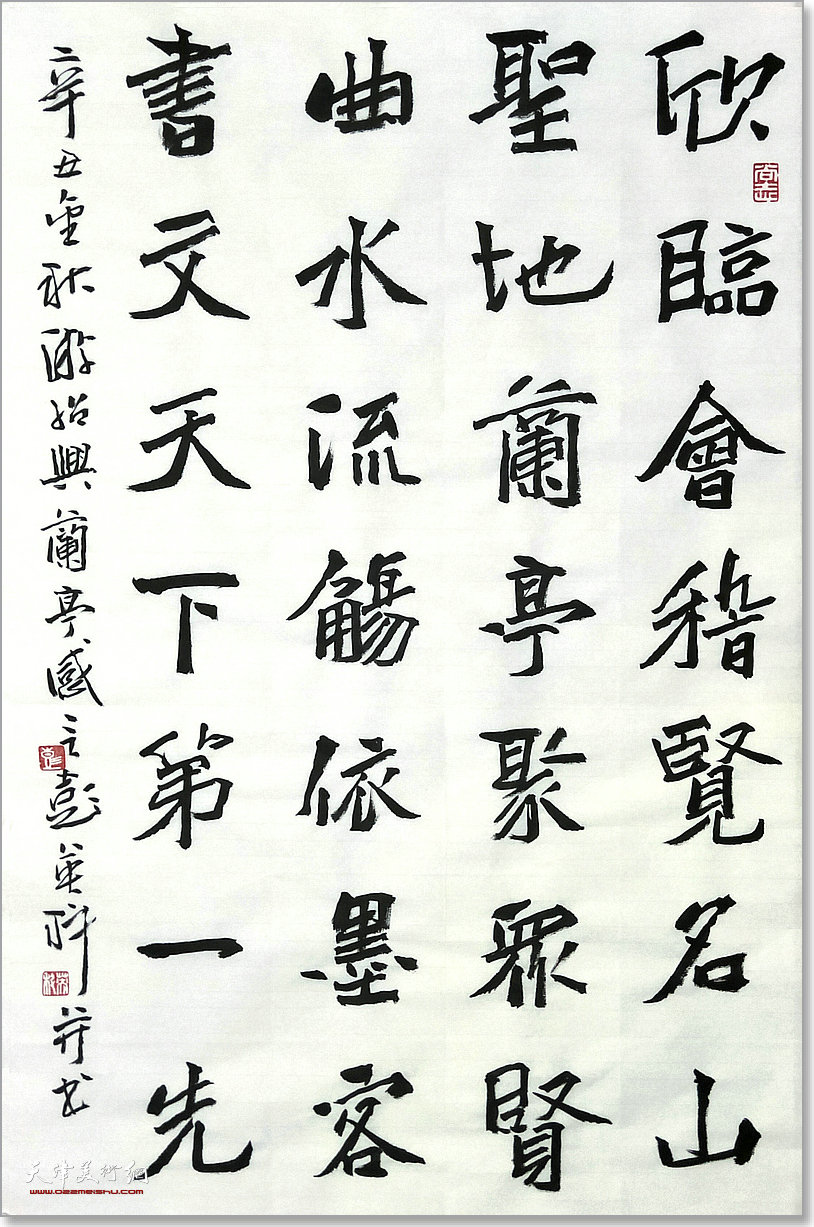 欣臨會稽覧名山
聖地蘭亭聚眾賢
曲水流觴依墨客
書文天下第一先
辛丑金秋游紹興蘭亭感言彭英科并书
天津美術網
www.022meishu.com